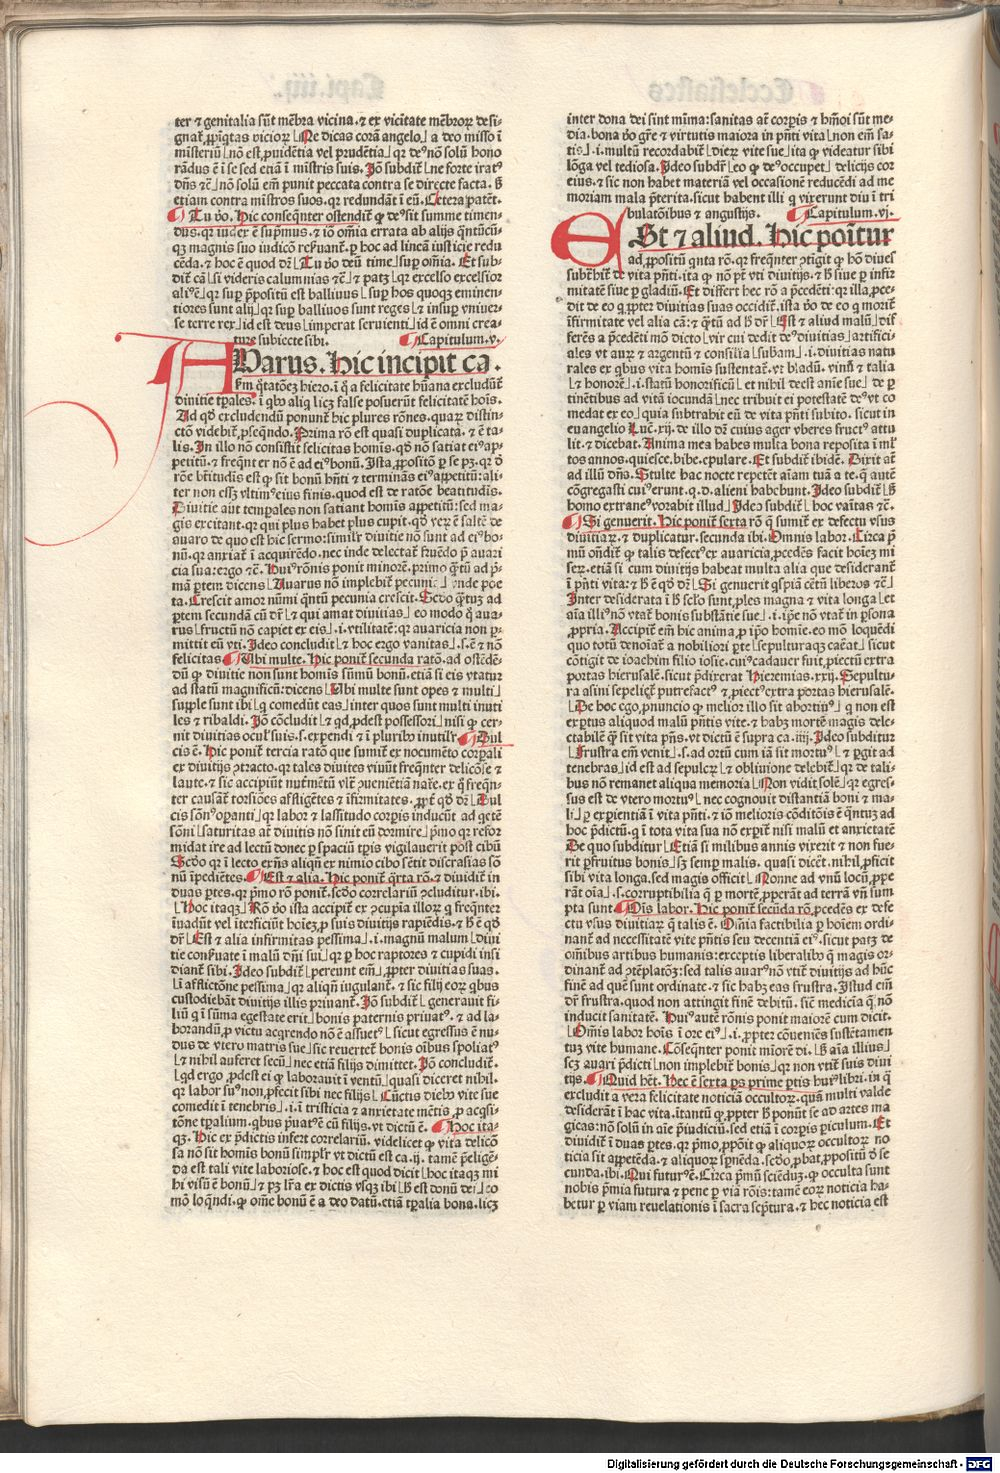 ter ⁊ genitalia sūt mēbra vicina. ⁊ ex vicītate mēbroꝝ desi-
Ne dicas corā angelo a deo misso ī
misteriū nō est ꝓuidētia vel prudētia qꝛ deꝰ nō solū hono
rādus ē ī se sed etiā ī mīstris suis. Jō subdit̄ ne forte iratꝰ
dn̄s ⁊c̄ nō solū em̄ punit peccata contra se directe facta. ẞ
etiam contra mīstros suos. qꝛ redundāt ī eū. Cetera patēt.
Tu v̄o. Hic conseq̄nter ostendit ꝙ deꝰ sit summe timen-
dus. qꝛ iudex ē sup̄mus. ⁊ iō om̄ia errata ab alijs
qꝛ magis suo iudicō p̱ hoc ad lineā iusticie redu
cēda. ⁊ hoc ē quod dꝛ Tu v̄o deū time sup̱ om̄ia. Et sub-
dit cā si videris calumnias ⁊c̄ ⁊ patꝫ qꝛ excelso excelsior
ali ē qꝛ sup̱ p̄positū est balliuus sup̱ hos quoqꝫ eminen-
tiores sunt alij qꝛ sup̱ balliuos sunt reges ⁊ insup̱ vniuer-
se terre rex id est deus imperat seruienti id ē omni crea-
ture subiecte sibi. Capitulum .v.
AVarus. Hic incipit ca.
hiero. ī q̄ a felicitate hūana excludūt̄
diuitie tp̱ales. ī qbꝰ aliq licꝫ false posuerūt felicitatē hoīs.
Ad qd̄ excludendū ponunt̄ hic plures rōnes. quaꝝ distin-
ctō videbit̄ ꝓseq̄ndo. Prima rō est quasi duplicata. ⁊ ē ta-
lis. In illo nō consistit felicitas homis. qd̄ nō satiat eiꝰ ap-
petitū. ⁊ freq̄nter nō ē ad eiꝰ bonū. Ista ꝓpositō p̱ se pꝫ. qꝛ d̄
rōe bt̄itudis est ꝙ sit bonū hn̄ti ⁊ terminās eiꝰ appetitū: ali-
ter non essꝫ vltimꝰ eius finis. quod est de ratōe beatitudis.
Diuitie aūt temp̱ales non satiant homīs appetitū: sed ma-
gis excitant. qꝛ qui plus habet plus cupit. qd̄ veꝝ ē saltē de
auaro de quo est hic sermo: simlr̄ diuitie nō sunt ad eiꝰ bo-
nū. qꝛ anxiat̄ ī acquirēdo. nec inde delectat̄ fruēdo p̱ auari
cia sua: ergo ⁊c̄. Huiꝰ rōnis ponit minorē. primo q̄tū ad p̱-
mā p̱tem dicens Auarus nō implebit̄ pecunia vnde poe
ta. Crescit amor nūmi q̄ntū pecunia crescit. Scdo q̄tuꝫ ad
p̱tem secundā cū dr̄ ⁊ qui amat diuitias eo modo q̄ aua-
rus fructū nō capiet ex eis .i. vtilitatē: qꝛ auaricia non p̱-
mittit eū vti. Ideo concludit ⁊ hoc ergo vanitas .s. ē ⁊ nō
felicitas. Vbi multe. Hic ponit̄ secunda ratō. ad ostēdē-
dū ꝙ diuitie non sunt homīs sūmū bonū. etiā si eis vtatur
ad statū magnificū: dicens Vbi multe sunt opes ⁊ multi
supple sunt ibi q comedūt eas inter quos sunt multi inuti
les ⁊ ribaldi. Jō cōcludit ⁊ qd ꝓdest possessori nisi ꝙ cer-
nit diuitias oculꝭ suis .s. expendi ⁊ ī pluribꝰ inutilr̄. Dul
cis ē. Hic ponit tercia ratō que sumit̄ ex nocumēto corp̱ali
ex diuitijs ꝯtracto. qꝛ tales diuites viuūt freq̄nter delicōse ⁊
laute. ⁊ sic accipiūt nutmētū vltꝝ ꝯueniētiā natre. ex q̄ freq̄n-
ter causat̄ torsiōes affligētes ⁊ īfirmitates. ꝓpt qd̄ dꝛ Dul
cis sōnꝰ op̱anti qꝛ labor ⁊ lassitudo corp̱is inducūt ad
sōni saturitas aūt diuitis nō sinit eū dormire p̱mo qꝛ refor
midat ire ad lectū donec p̱ spaciū tp̱is vigilauerit post cibū
Scdo qꝛ ī lecto exn̄s aliqn̄ ex nimio cibo sētit discrasias sō
nū īpediētes. Est ⁊ alia. Hic ponit̄ q̄rta rō. ⁊ diuidit̄ in
duas p̱tes. qꝛ p̱mo rō ponit̄. scdo correlariū ꝯcluditur. ibi.
Hoc itaqꝫ Rō v̄o ista accipit̄ ex ꝯcupīa illoꝝ q freq̄nter
īuadūt vel īterficiūt hoīeꝫ ꝓ suis diuitijs rapiēdis. ⁊ ẞ ē qd̄
dr̄ Est ⁊ alia infirmitas pessima .i. magnū malum diui
tie conseruate ī malū dn̄i sui qꝛ p̱ hoc raptores ⁊ cupidi insi
diant̄ sibi. Ideo subdit̄ pereunt em̄ ꝓpter diuitias suas.
ī afflictōne pessima qꝛ aliqn̄ iugulant̄. ⁊ sic filij eoꝝ qbus
custodiebāt diuitijs illis priuant̄. Jō subdit̄ generauit fi-
liū q ī sūma egestate erit bonis paternis priuatꝰ. ⁊ ad la-
borandū ꝓ victu acqrendo nō ē assuetꝰ sicut egressus ē nu-
dus de vtero matris sue sic reuertet̄ bonis oībus spoliatꝰ
⁊ nihil auferet secū nec etiā filijs dimittet. Jō concludit̄.
qd ergo ꝓdest ei ꝙ laborauit ī ventū quasi diceret nihil.
qꝛ labor suꝰ non ꝓfecit sibi nec filijs Cūctis diebꝰ vite sue
comedit ī tenebris .i. ī tristicia ⁊ anxietate mētis ꝓ acqsi-
tōne tp̱alium. qbus p̱uatꝰ ē cū filijs. vt dictū ē. Hoc ita-
qꝫ. Hic ex p̱dictis infert correlariū. videlicet ꝙ vita delicō
sa nō sit homīs bonū simplr̄ vt dictū est ca. ij. tamē p̱eligē-
da est tali vite laboriose. ⁊ hoc est quod dicit hoc itaqꝫ mi
hi visū ē bonū ⁊ pꝫ lr̄a ex dictis vsqꝫ ibi ẞ est donū dei eo
mō loq̄ndi. ꝙ om̄e bonū ē a deo datū. etiā tp̱alia bona. licꝫ
inter dona dei sint mīma: sanitas aūt corp̱is ⁊ hm̄oi sūt me-
dia. bona v̄o gr̄e ⁊ virtutis maiora in p̄nti vita non em̄ sa-
tis .i. multū recordabit̄ dieꝝ vite sue ita ꝙ videatur sibi
lōga vel tediosa. Ideo subdr̄ eo ꝙ deꝰ occupet deliciis cor
eius. ⁊ sic non habet materiā vel occasionē reducēdi ad me
moriam mala p̱terita. sicut habent illi q vixerunt diu ī tri
bulatōibus ⁊ angustijs. Capitulum .vj.
ESt ⁊ aliud. Hic ponitur
ad ꝓpositū qnta rō. qꝛ freq̄nter ꝯtigit ꝙ hō diues
de vita p̄nti. ita ꝙ nō pt̄ vti diuitijs. ⁊ ẞ siue p̱ infir
mitatē siue p̱ gladiū. Et differt hec rō a p̱cedēti: qꝛ illa ꝓce-
dit de eo q ꝓpter diuitias suas occidit̄. ista v̄o de eo q morit̄
īfirmitate vel alia cā: ⁊ q̄tū ad ẞ dꝛ Est ⁊ aliud malū dif
ferēs a p̱cedēti mō dicto vir cui dedit deꝰ diuitias artifici-
ales vt auꝝ ⁊ argentū ⁊ consilia subam .i. diuitias natu
rales ex qbus vita homis sustentat̄. vt bladū. vinū ⁊ talia
⁊ honorē .i. statū honorificū et nihil deest aīe sue de p̱
tinētibus ad vitā iocundā nec tribuit ei potestatē deꝰ vt co
medat ex eo quia subtrahit eū de vita p̄nti subito. sicut in
euangelio Luc̄. xij. de illo dr̄ cuius ager vberes fructꝰ attu
lit. ⁊ dicebat. Anima mea habes multa bona reposita ī ml̄
tos annos. quiesce. bibe. epulare. Et subdit̄ ibidē. Dixit aūt
ad illū dn̄s. Stulte hac nocte repetēt aīam tuā a te. q̄ autē
cōgregasti cuiꝰ erunt. q. d. alieni habebunt. Ideo subdit̄ ẞ
homo extraneꝰ vorabit illud Ideo subdit̄ hoc vaītas ⁊c̄.
Si genuerit. Hic ponit̄ sexta rō q̄ sumit̄ ex defectu vsus
diuitiaꝝ. ⁊ duplicatur. secunda ibi. Omnis labor. Circa p̱
mū on̄dit̄ ꝙ talis defectꝰ ex auaricia ꝓcedēs facit hoīeꝫ mi
seꝝ. etiā si cum diuitijs habeat multa alia que desiderant̄
ī p̄nti vita: ⁊ ẞ ē qd̄ dꝛ Si genuerit qspiā cētū liberos ⁊c̄
Inter desiderata ī ẞ scło sunt ꝓles magna ⁊ vita longa et
aīa illiꝰ nō vtat̄ bonis substātie sue .i. ip̄e nō vtat̄ in p̱sona
ꝓpria. Accipit̄ em̄ hic anima ꝓ ip̄o homīe. eo mō loquēdi
quo totū denoīat̄ a nobiliori p̱te sepulturaqꝫ caēat sicut
cōtigit de ioachim filio iosie. cuiꝰ cadauer fuit piectū extra
portas hierusalē. sicut p̱dixerat Hieremias. xxij. Sepultu-
ra asini sepelieꝭ putrefactꝰ ⁊ piectꝰ extra portas hierusalē.
De hoc ego pnuncio ꝙ melior illo sit abortiuꝰ q non est
exp̱tus aliquod malū p̄ntis vite. ⁊ habꝫ mortē magis dele-
ctabilē q̄ sit vita p̄ns. vt dictū ē supra ca. iiij. Ideo subditur
Frustra em̄ venit .s. ad ortū cum iā sit mortuꝰ ⁊ p̱git ad
tenebras id est ad sepulcꝝ ⁊ obliuione delebit̄ qꝛ de tali-
bus nō remanet aliqua memoria Non vidit solē qꝛ egres-
sus est de vtero mortuꝰ nec cognouit distantiā boni ⁊ ma-
li p̱ exp̱ientiā ī vita p̄nti. ⁊ iō melioris cōditōis ē q̄ntuꝫ ad
hoc p̱dictū. q ī tota vita sua nō exp̱it̄ nisi malū et anxietatē
De quo subditur Etiā si milibus annis vixerit ⁊ non fue-
rit p̱fruitus bonis sꝫ semp̱ malis. quasi dicēt. nihil ꝓficit
sibi vita longa. sed magis officit Nonne ad vnū locū ꝓpe
rāt oīa .s. corruptibilia q̄ p̱ mortē ꝓperāt ad terrā vn̄ sum
pta sunt Om̄s labor. Hic ponit̄ secūda rō. ꝓcedēs ex defe
ctu vsus diuitiaꝝ q̄ talis ē. Om̄ia factibilia p̱ hoīem ordi-
nant̄ ad necessitatē vite p̄ntis seu decentiā eiꝰ. sicut patꝫ de
om̄ibus artibus humanis: exceptis liberalibꝰ q̄ magis or-
dinant̄ ad ꝯtēplatōꝫ: sed talis auarꝰ nō vtit̄ diuitijs ad hūc
finē ad quē sunt ordinate. ⁊ sic habꝫ eas frustra. Istud em̄
dr̄ frustra. quod non attingit finē debitū. sic̄ medicīa q̄ nō
inducit sanitatē. Huiꝰ autē rōnis ponit maiorē cum dicit.
Om̄is labor hoīs ī ore eiꝰ .i. ꝓpter cōueniēs sustētamen
tuꝫ vite humane. Cōseq̄nter ponit mīorē di. ẞ aīa illius
scꝫ auari p̱dicti non implebit̄ bonis qꝛ non vtit̄ suis diui
tijs. Quid hēt. Hec ē sexta ps prime p̱tis huiꝰ libri. in q̄
excludit a vera felicitate noticiā occultoꝝ. quā multi valde
desiderāt ī hac vita. ītantū ꝙ ꝓpter ẞ ponūt se ad artes ma
gicas: nō solū in aīe p̱iudiciū. sed etiā ī corp̱is p̱iculum. Et
diuidit̄ ī duas p̱tes. qꝛ p̱mo ꝓpōit ꝙ aliquoꝝ occultoꝝ no
ticia sit appetēda. ⁊ aliquoꝝ sp̱nēda. scdo ꝓbat ꝓpositū. ibi se
cunda. ibi. Qui futurꝰ ē. Circa p̱mū sciēduꝫ. ꝙ occulta sunt
nobis p̱mia futura ⁊ pene p̱ viā rōis: tamē eoꝝ noticia ha-
betur p̱ viam reuelationis ī sacra sc̱ptura. ⁊ hec noticia est
Digitalisierung gefördert durch die Deutsche Forschungsgemeinschaft - DFG